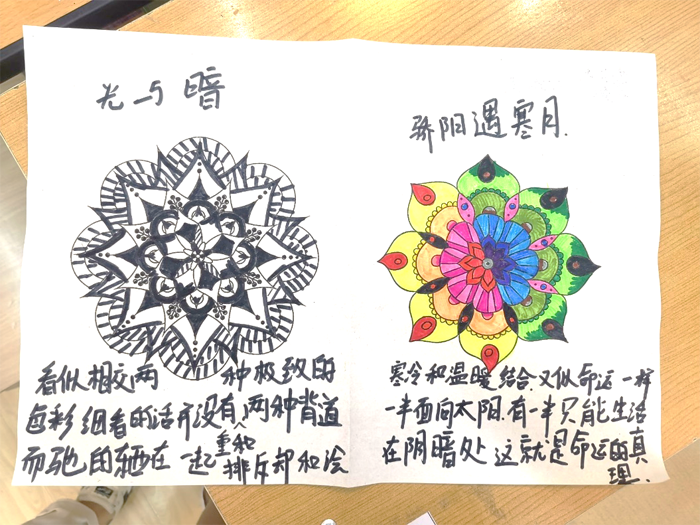 光与暗
看似相交两 种极致的
色彩 细看的话 并没有 两种背道
而驰 的 在一起 重和
排斥却和谂
骄阳遇寒月.
寒冷和温暖 结合 又似命运 一样
一半面向太阳. 有一半只能生活
在阴暗处 这就是命运的真
理.